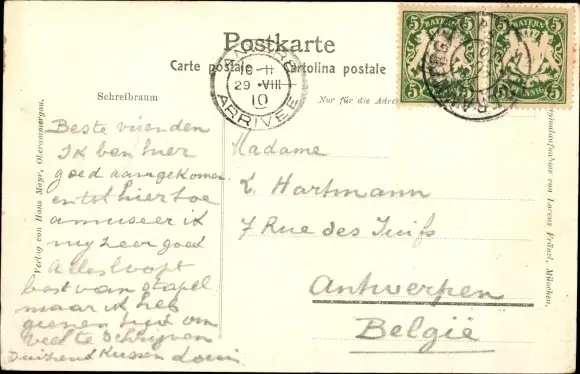 Postkarte
Carte postale
Cartolina postale
Schreibraum
Nur für die Adre
ARRIVÉE
10-11
29 VIII
10
5 BAYERN 5
5 BAYERN 5
PFENNIG
Verlag von Hans Mayr, Oberammergau.
Originalaufnahme von Lorenz Fränzl, München.
Beste vrienden
Ik ben hier
goed aangekomen
en tot hiertoe
amuseer ik
my heer goed
Alles loopt
best van stapel
maar ik heb
geenen tyd om
veel te schryven
duizend Kussen Louis
Madame
L. Hartmann
7 Rue des Juifs
Antwerpen
België